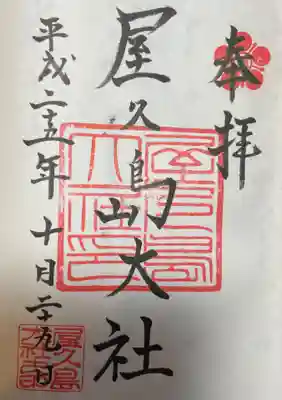 奉拝
屋久島大社
平成二十五年十月二十九日
屋久島
大社印
屋久島